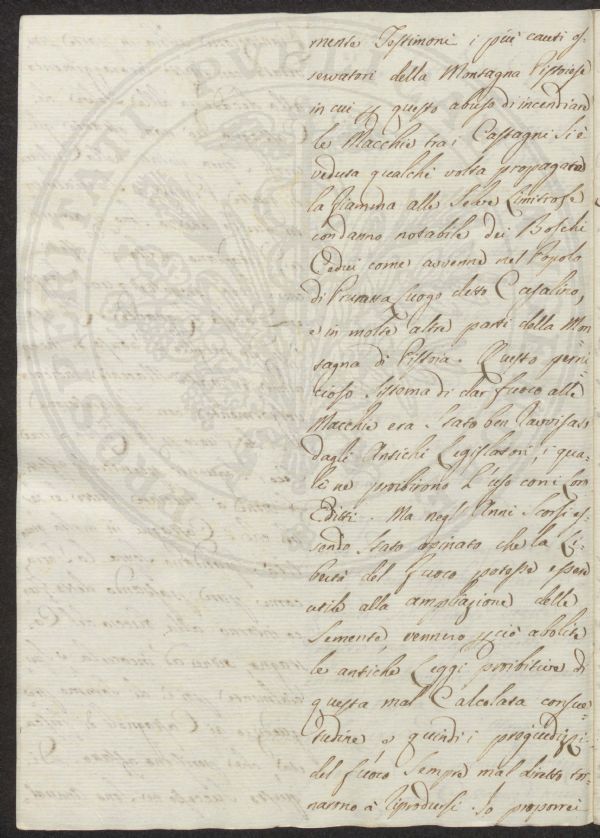 mente Testimoni i più cauti os-
servatori della Montagna Pistoiese
in cui p questo abuso di incendiare
le Macchie tra i Castagni si è
veduta qualche volta propagata
la fiamma alle Selve limitrofe
con danno notabile dei Boschi
Cedui come avvenne nel Popolo
di Prunetta luogo detto Casalino,
e in molte altre parti della Mon-
tagna di Pistoia. Questo perni-
cioso sistema di dar fuoco alle
Macchie era stato ben ravvisato
dagli Antichi Legislatori, i qua-
li ne proibirono l'uso con i loro
Editti. Ma negl'Anni scorsi es-
sendo stato opinato che la Li-
bertà del fuoco potesse essere
utile alla ampliazione delle
Semente, vennero p ciò abolite
le antiche Leggi proibitive di
questa mal calcolata consue-
tudine e quindi i pregiudizi
del fuoco sempre mal diretto tor-
narono à riprodursi. Io proporrei